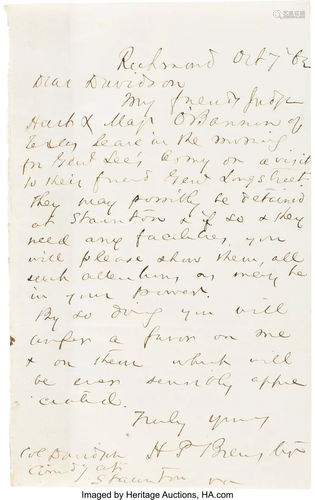 Richmond Oct 7th 62
Dear Davidson
My friends Judge
Hart & Maj O'Bannon of
Texas leave in the morning
for Genl Lee's Army on a visit
to their friend Genl Longstreet.
they may possibly be detained
at Staunton & if so & they
need any facilities, you
will please show them, all
such attention, as may be
in your power.
By so doing you will
confer a favor on me
& on them which will
be ever sensibly appre
ciated.
Truly yours
H P Brewster
Col Davidson
Comdg at
Staunton va
Imaged by Heritage Auctions, HA.com